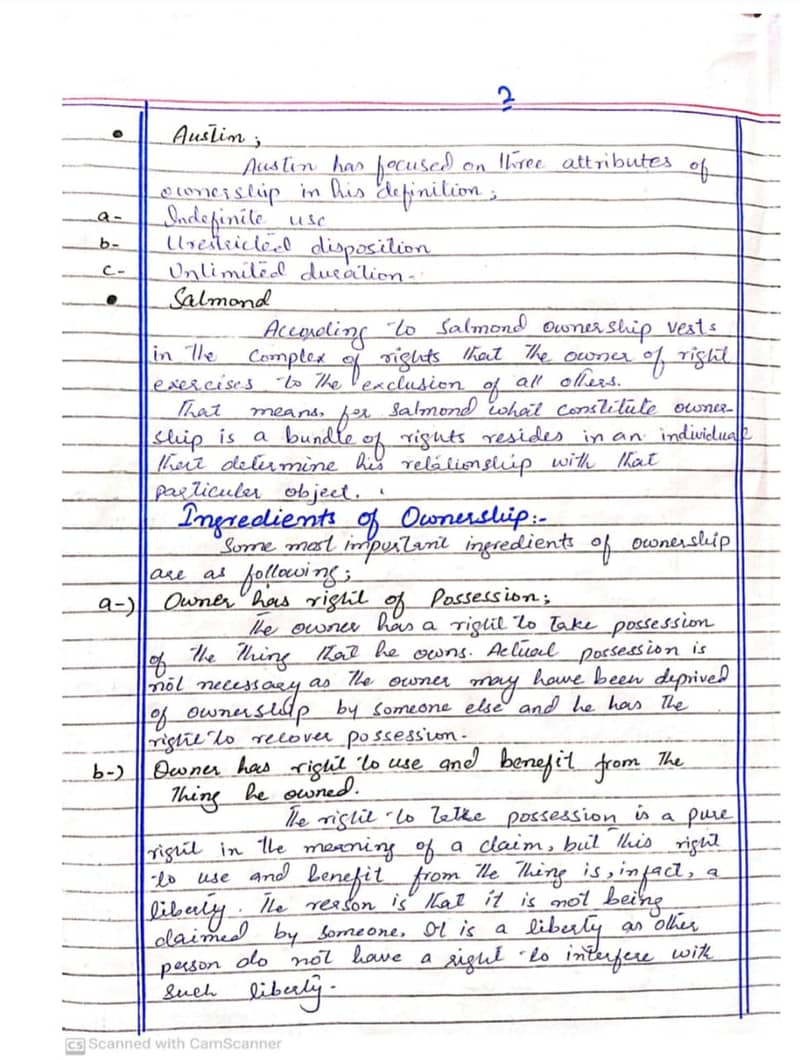 2
• Austin ;
Austin has focused on three attributes of
ownership in his definition ;
a- Indefinite use
b- Unrestricted disposition
c- Unlimited duration.
• Salmond
According to Salmond ownership vests
in the complex of rights that the owner of right
exercises to the exclusion of all others.
That means, for Salmond what constitute owner-
ship is a bundle of rights resides in an individual
that determine his relationship with that
particular object.
Ingredients of Ownership:-
Some most important ingredients of ownership
are as following ;
a-) Owner has right of Possession ;
The owner has a right to take possession
of the thing that he owns. Actual possession is
not necessary as the owner may have been deprived
of ownership by someone else and he has the
right to recover possession.
b-) Owner has right to use and benefit from the
thing he owned.
The right to take possession is a pure
right in the meaning of a claim, but this right
to use and benefit from the thing is, infact, a
liberty. The reason is that it is not being
claimed by someone. It is a liberty as other
person do not have a right to interfere with
such liberty.
CS Scanned with CamScanner